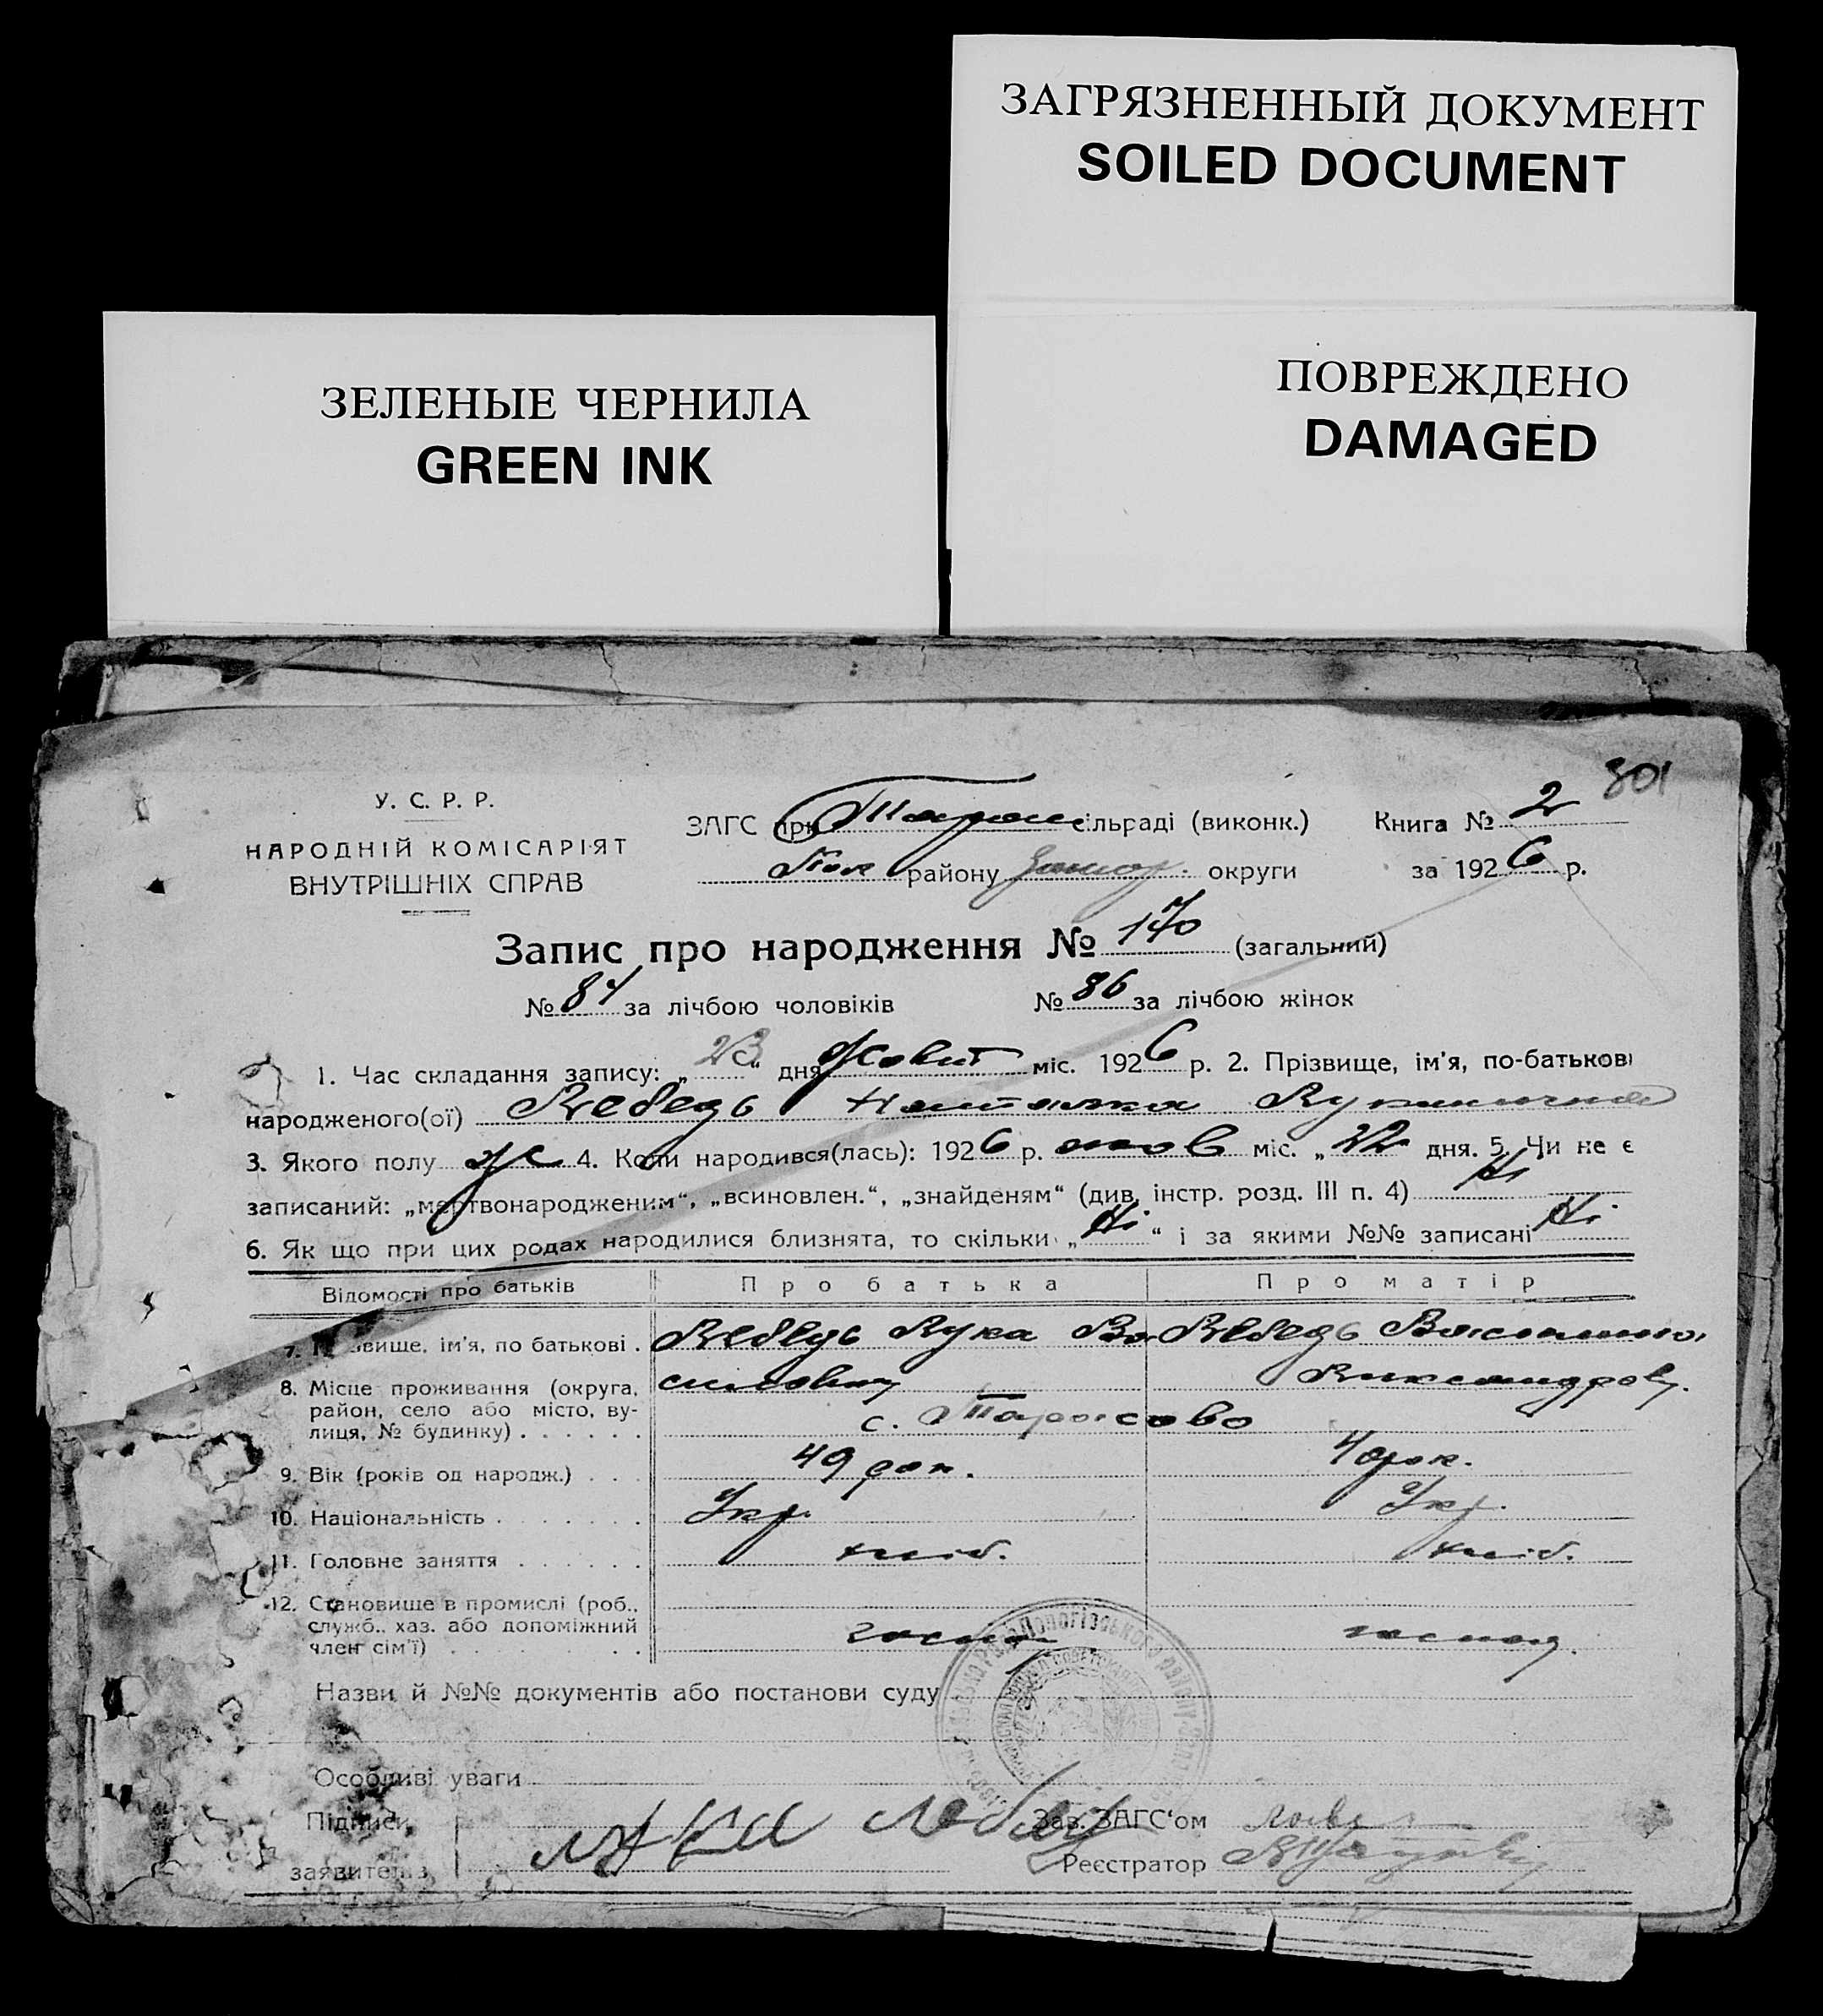 ЗАГРЯЗНЕННЫЙ ДОКУМЕНТ
SOILED DOCUMENT
ЗЕЛЕНЫЕ ЧЕРНИЛА
GREEN INK
ПОВРЕЖДЕНО
DAMAGED
301
У. С. Р. Р.
НАРОДНІЙ КОМІСАРІЯТ
ВНУТРІШНІХ СПРАВ
ЗАГС при Тарас сільраді (виконк.) Книга № 2
Пол району Запор. округи за 1926 р.
Запис про народження № 170 (загальний)
№ 84 за лічбою чоловіків № 86 за лічбою жінок
1. Час складання запису: „23“ дня Жовт міс. 1926 р. 2. Прізвище, ім'я, по-батькові
народженого(ої) Лебедь Наталка Лукинична
3. Якого полу ж 4. Коли народився(лась): 1926 р. жов міс. „22 дня. 5. Чи не є
записаний: „мертвонародженим“, „всиновлен.“, „знайденям“ (див. інстр. розд. III п. 4) Ні
6. Як що при цих родах народилися близнята, то скільки „Ні“ і за якими №№ записані Ні
Відомості про батьків Про батька Про матір
7. Прізвище, ім'я, по батькові . Лебедь Лука Ва Лебедь
8. Місце проживання (округа, силович Александров.
район, село або місто, ву- с. Тарасово
лиця, № будинку) . . . . . .
9. Вік (років од народж.) . . . 49 рок. 40 рок.
10. Національність . . . . . . . Укр. Укр.
11. Головне заняття . . . . . . хліб. хліб.
12. Становище в промислі (роб.,
служб., хаз. або допоміжний
член сім'ї) . . . . . . . господ.
Назви й №№ документів або постанови суду
Особливі уваги
Підписи Лебедь Зав. ЗАГС'ом
заявителів Реєстратор